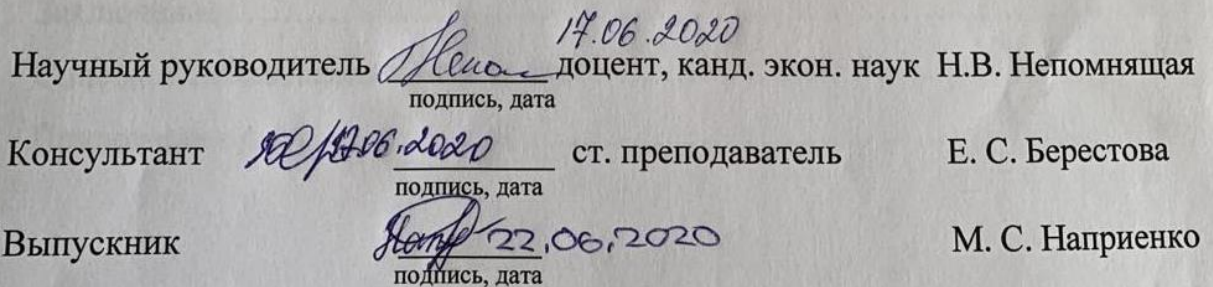 17.06.2020
Научный руководитель доцент, канд. экон. наук Н.В. Непомнящая
подпись, дата
Консультант 17.06.2020 ст. преподаватель Е. С. Берестова
подпись, дата
Выпускник 22.06.2020 М. С. Наприенко
подпись, дата